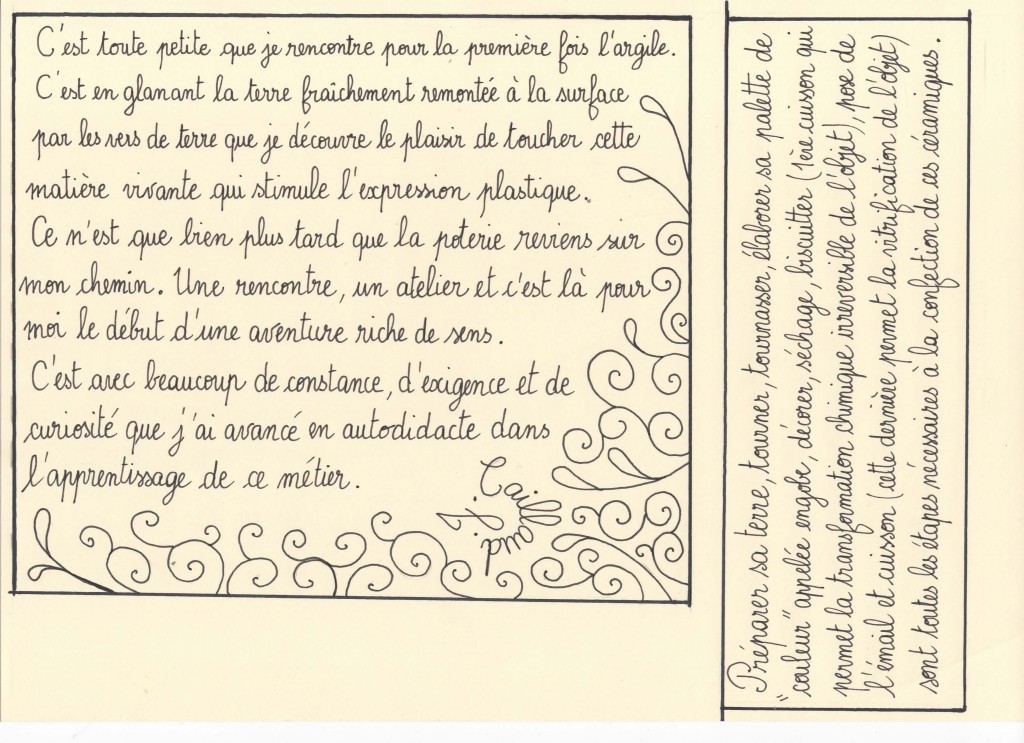 C'est toute petite que je rencontre pour la première fois l'argile.
C'est en glanant la terre fraîchement remontée à la surface
par les vers de terre que je découvre le plaisir de toucher cette
matière vivante qui stimule l'expression plastique.
Ce n'est que bien plus tard que la poterie reviens sur
mon chemin. Une rencontre, un atelier et c'est là pour
moi le début d'une aventure riche de sens.
C'est avec beaucoup de constance, d'exigence et de
curiosité que j'ai avancé en autodidacte dans
l'apprentissage de ce métier.
J. Caillaud
Préparer sa terre, tourner, tournasser, élaborer sa palette de
"couleur" appelée engobe, décorer, séchage, biscuitter (1ère cuisson qui
permet la transformation chimique irreversible de l'objet), pose de
l'émail et cuisson (cette dernière permet la vitrification de l'objet)
sont toutes les étapes nécessaires à la confection de ces céramiques.